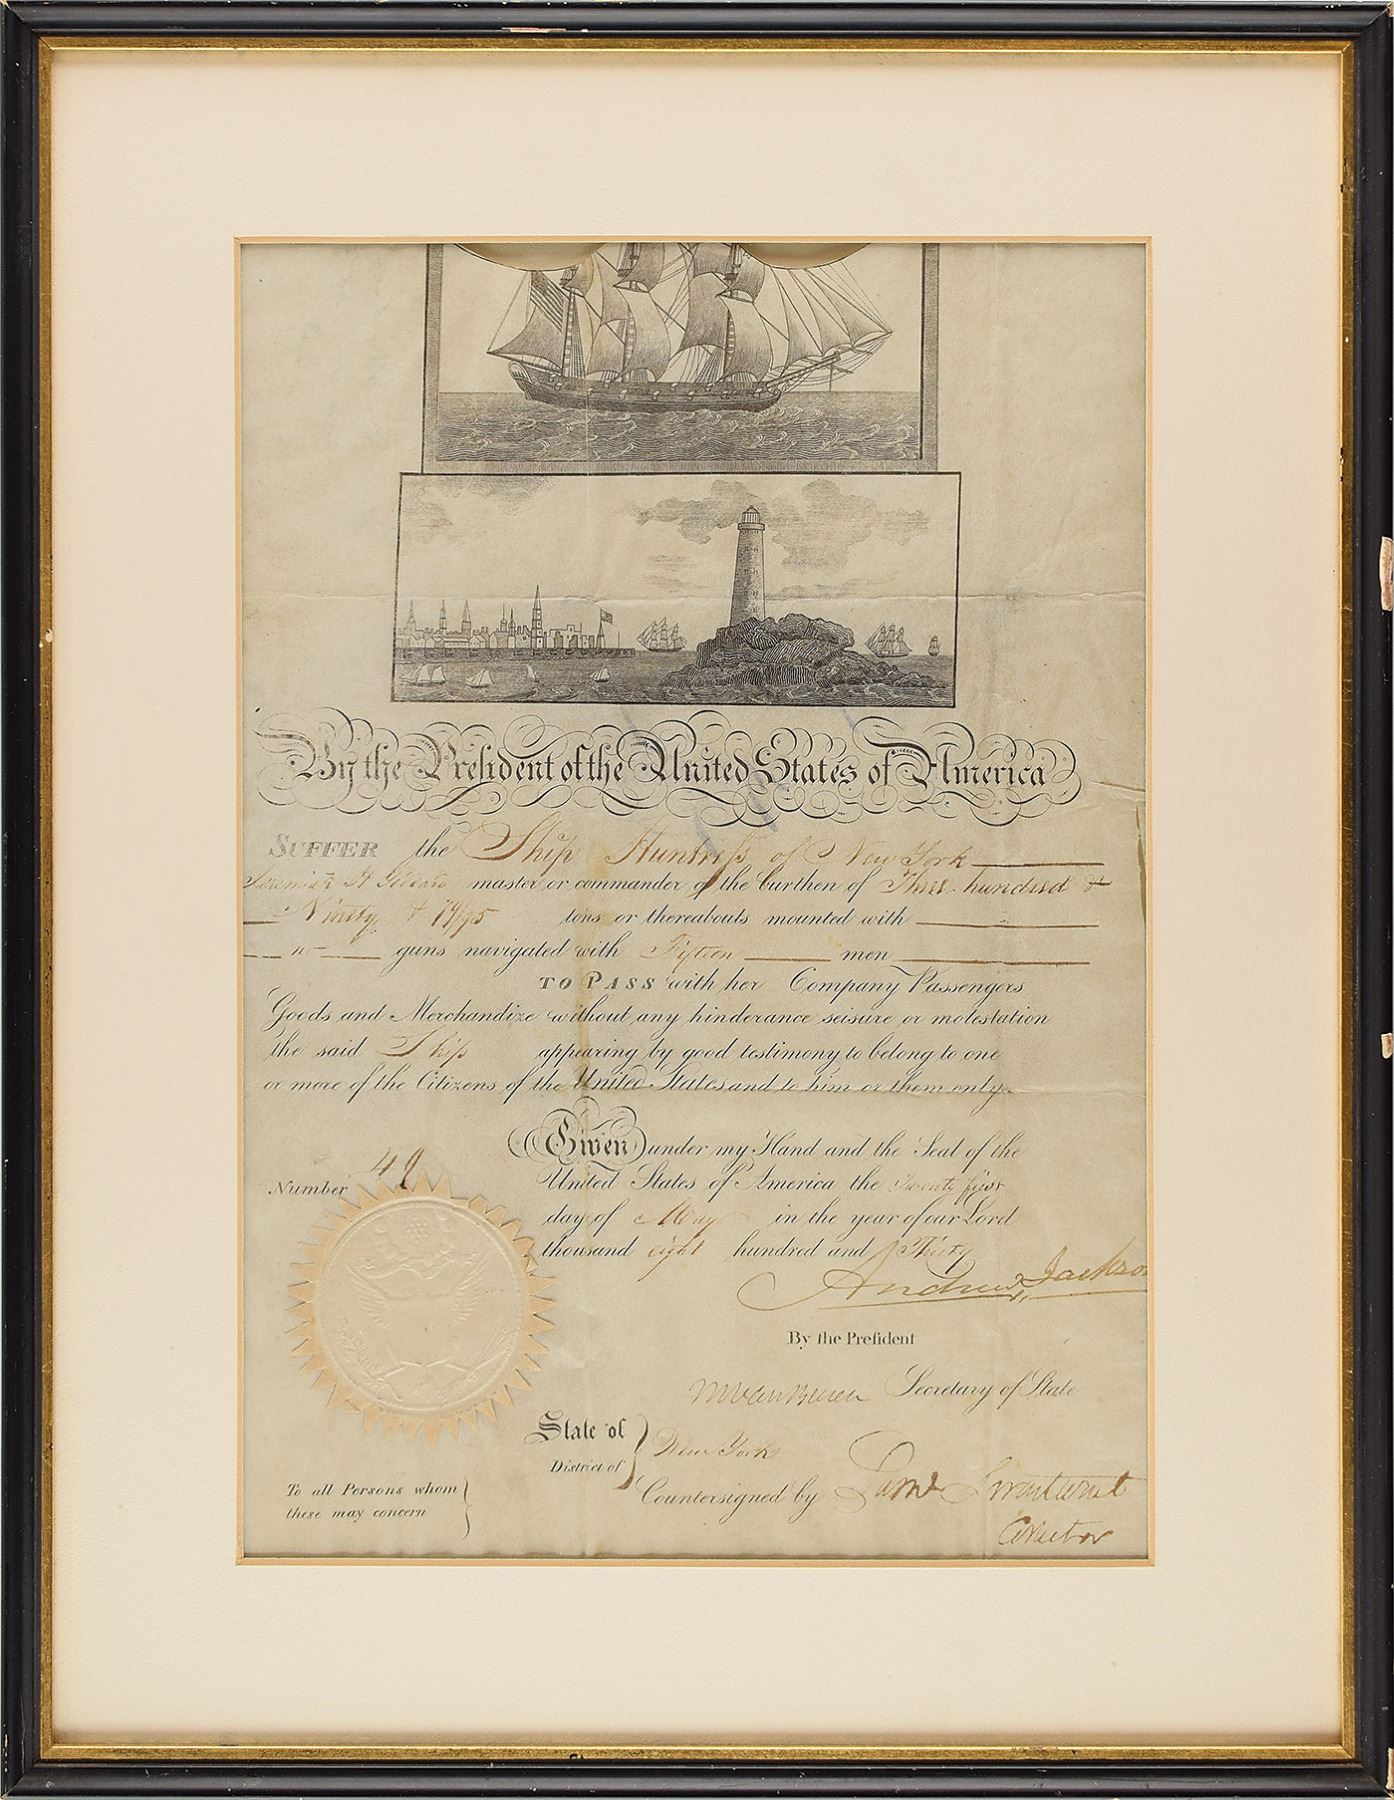 By the President of the United States of America
SUFFER the Ship Huntress of New York
Jeremiah H master or commander of the burthen of Three hundred &
Ninety & 79/95 tons or thereabouts mounted with
no guns navigated with Fifteen men
TO PASS with her Company Passengers
Goods and Merchandize without any hinderance seisure or molestation
the said Ship appearing by good testimony to belong to one
or more of the Citizens of the United States and to him or them only.
Given under my Hand and the Seal of the
Number 49
United States of America the Twenty first
day of May in the year of our Lord
thousand eight hundred and Thirty
Andrew Jackso
By the President
M Van Buren Secretary of State
State of
District of
New York
Countersigned by Saml Swartwout
Collector
To all Persons whom
these may concern